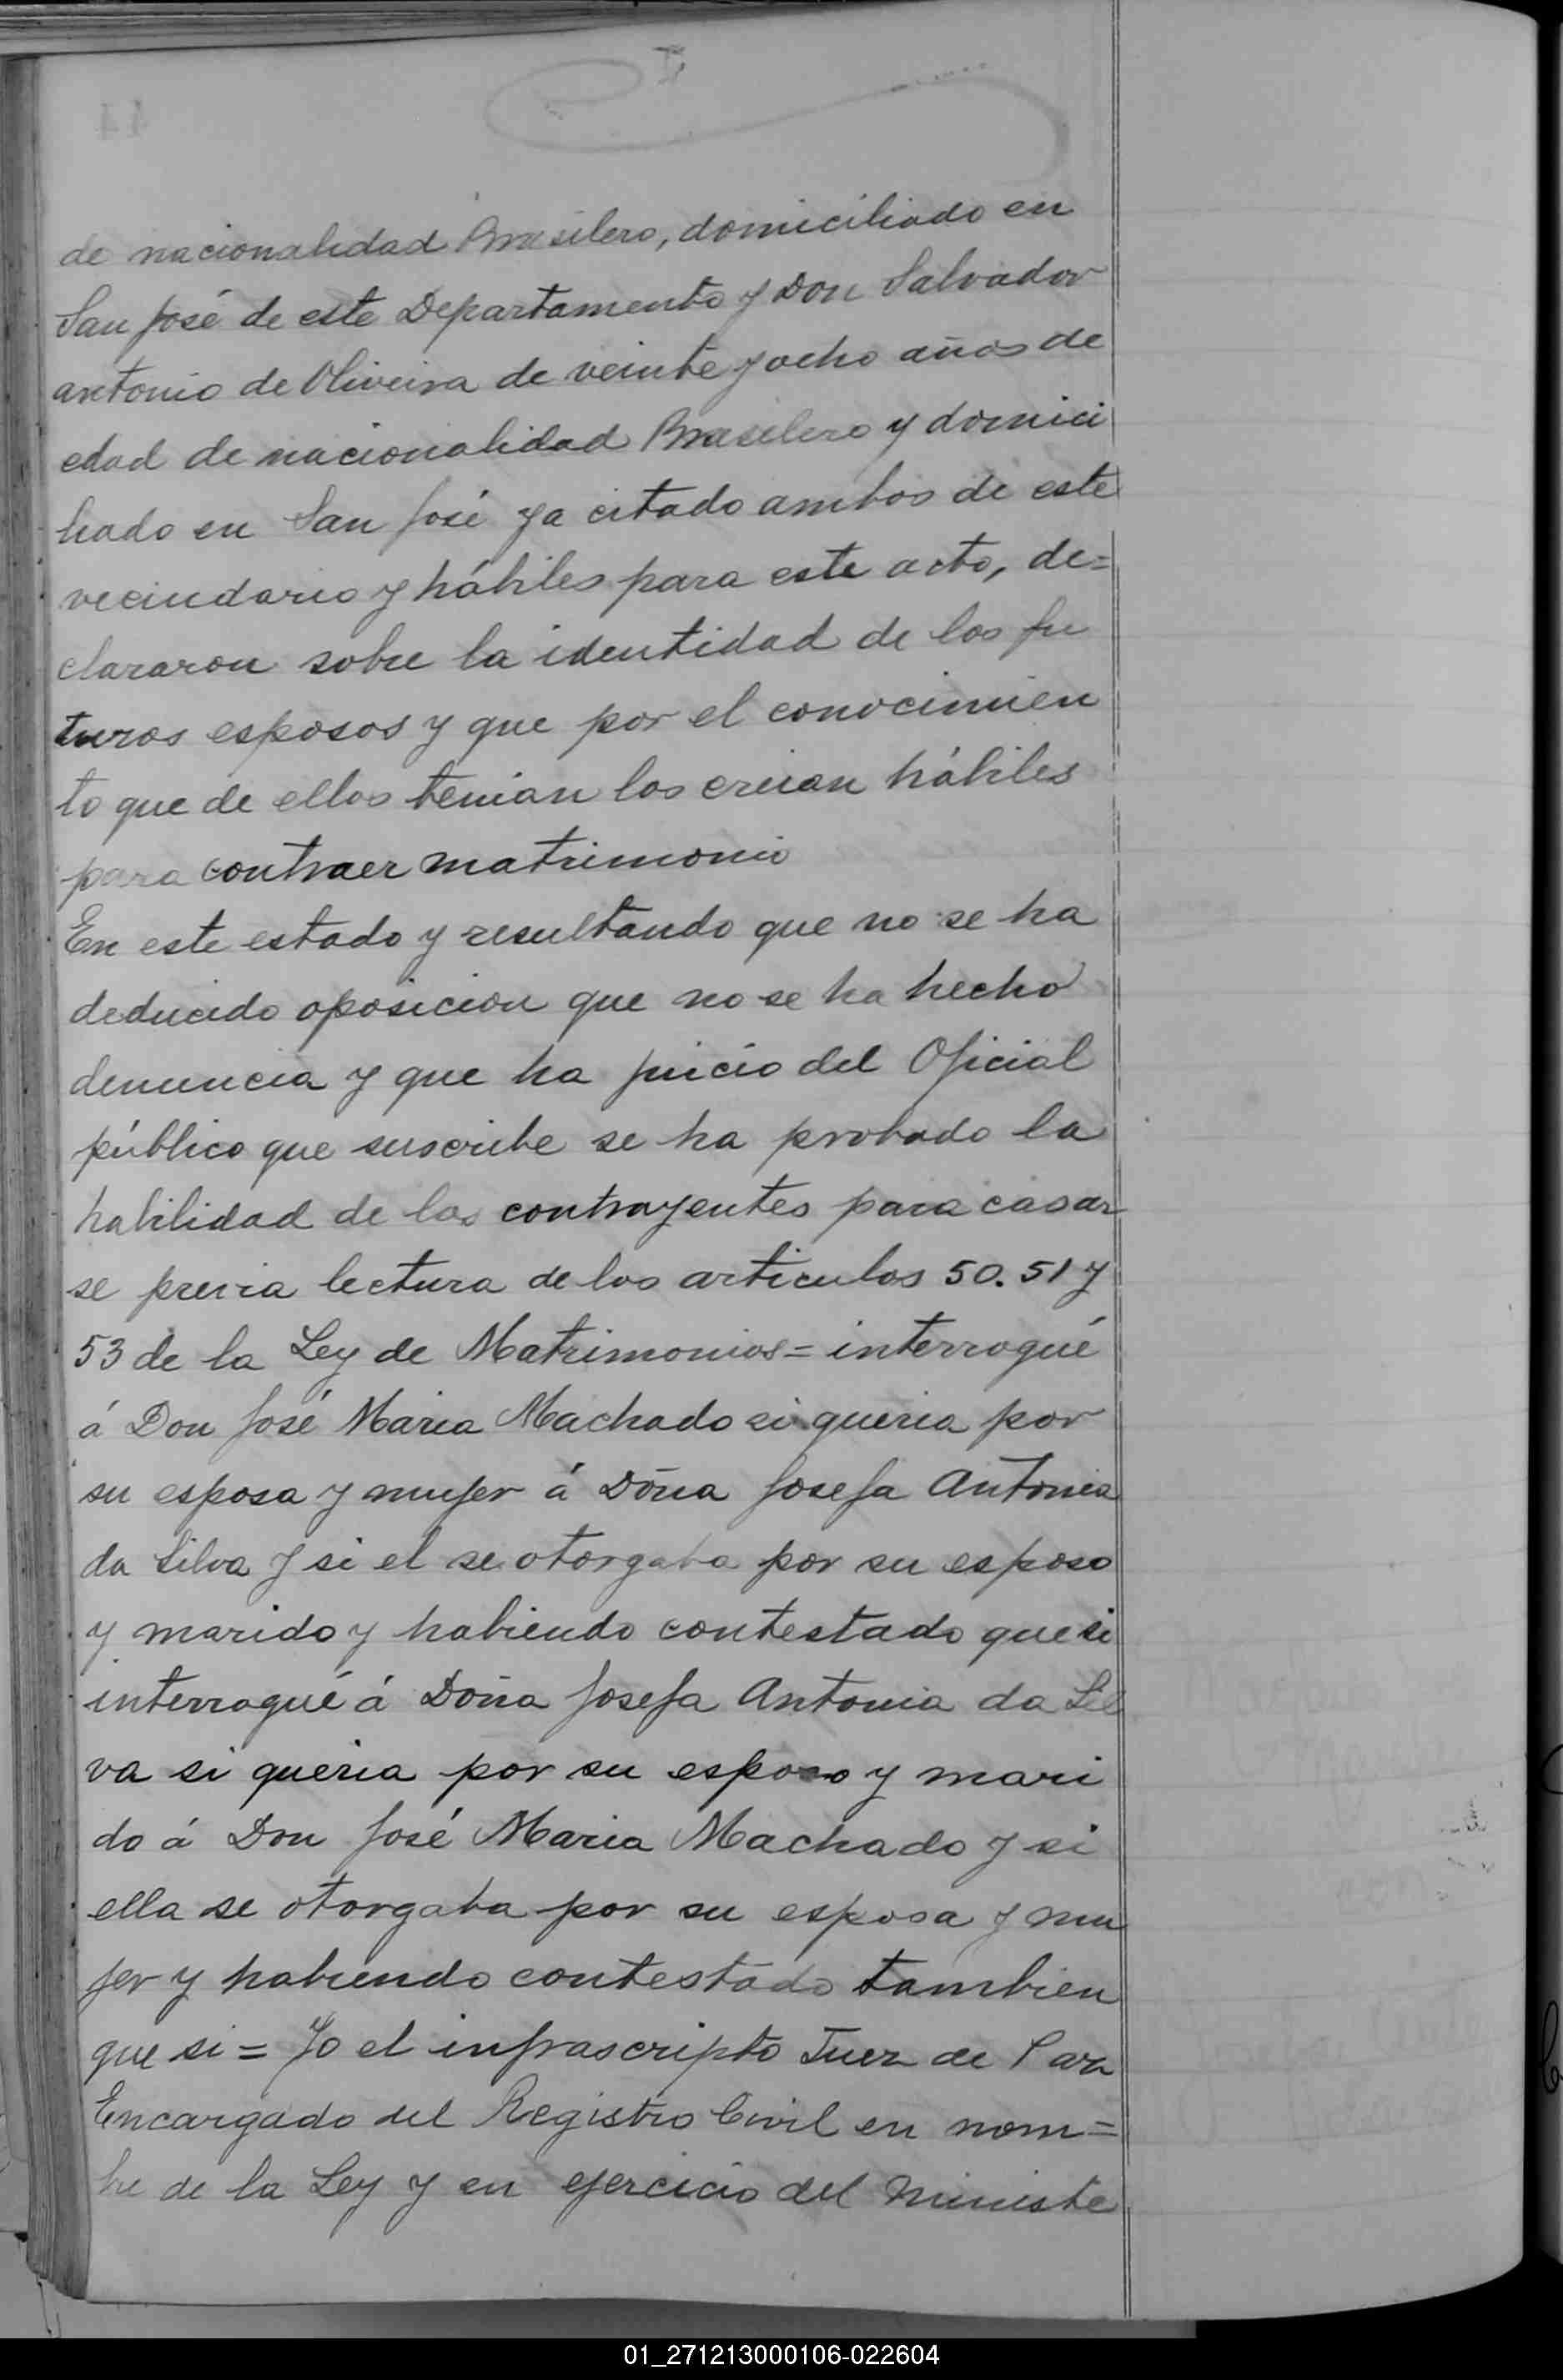 de nacionalidad Brasilero, domiciliado en
San José de este Departamento y Don Salvador
antonio de Oliveira de veinte y ocho años de
edad de nacionalidad Brasilero y domici
liado en San José ya citado ambos de este
vecindario y hábiles para este acto, de=
clararon sobre la identidad de los fu
turos esposos y que por el conocimien
to que de ellos tenian los creian hábiles
para contraer matrimonio
En este estado y resultando que no se ha
deducido oposicion que no se ha hecho
denuncia y que ha juicio del Oficial
público que suscribe se ha probado la
habilidad de los contrayentes para casar
se previa lectura de los articulos 50. 51 y
53 de la Ley de Matrimonios = interrogué
á Don José Maria Machado si queria por
su esposa y mujer á Doña Josefa Antonia
da Silva y si el se otorgaba por su esposo
y marido y habiendo contestado que si
interrogué á Doña Josefa Antonia da Sil
va si queria por su esposo y mari
do á Don José Maria Machado y si
ella se otorgaba por su esposa y mu
jer y habiendo contestado tambien
que si = Yo el infrascripto Juez de Paz
Encargado del Registro Civil en nom=
bre de la Ley y en ejercicio del Ministe
01_271213000106-022604